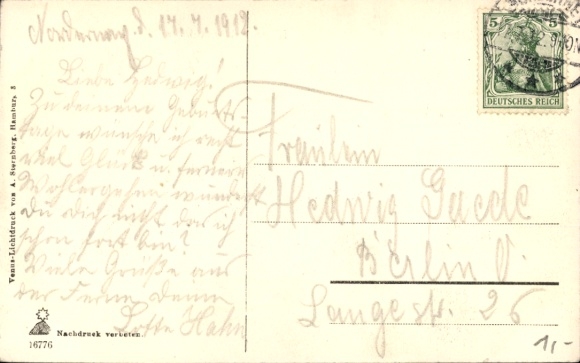 Norderney d. 17.7.1912.
Liebe Hedwig!
Zu deinem Geburts-
tage wünsche ich recht
viel Glück u. ferneres
Wohlergehen wundert
Du dich nicht das ich
schon fort bin?
Viele Grüße aus
der Ferne deine
Lotte Hahn
Fräulein
Hedwig Gaede
Berlin O.
Langestr. 26
5 5
DEUTSCHES REICH
Venus-Lichtdruck von A. Sternberg, Hamburg. 5
Nachdruck verboten.
16776
1,-